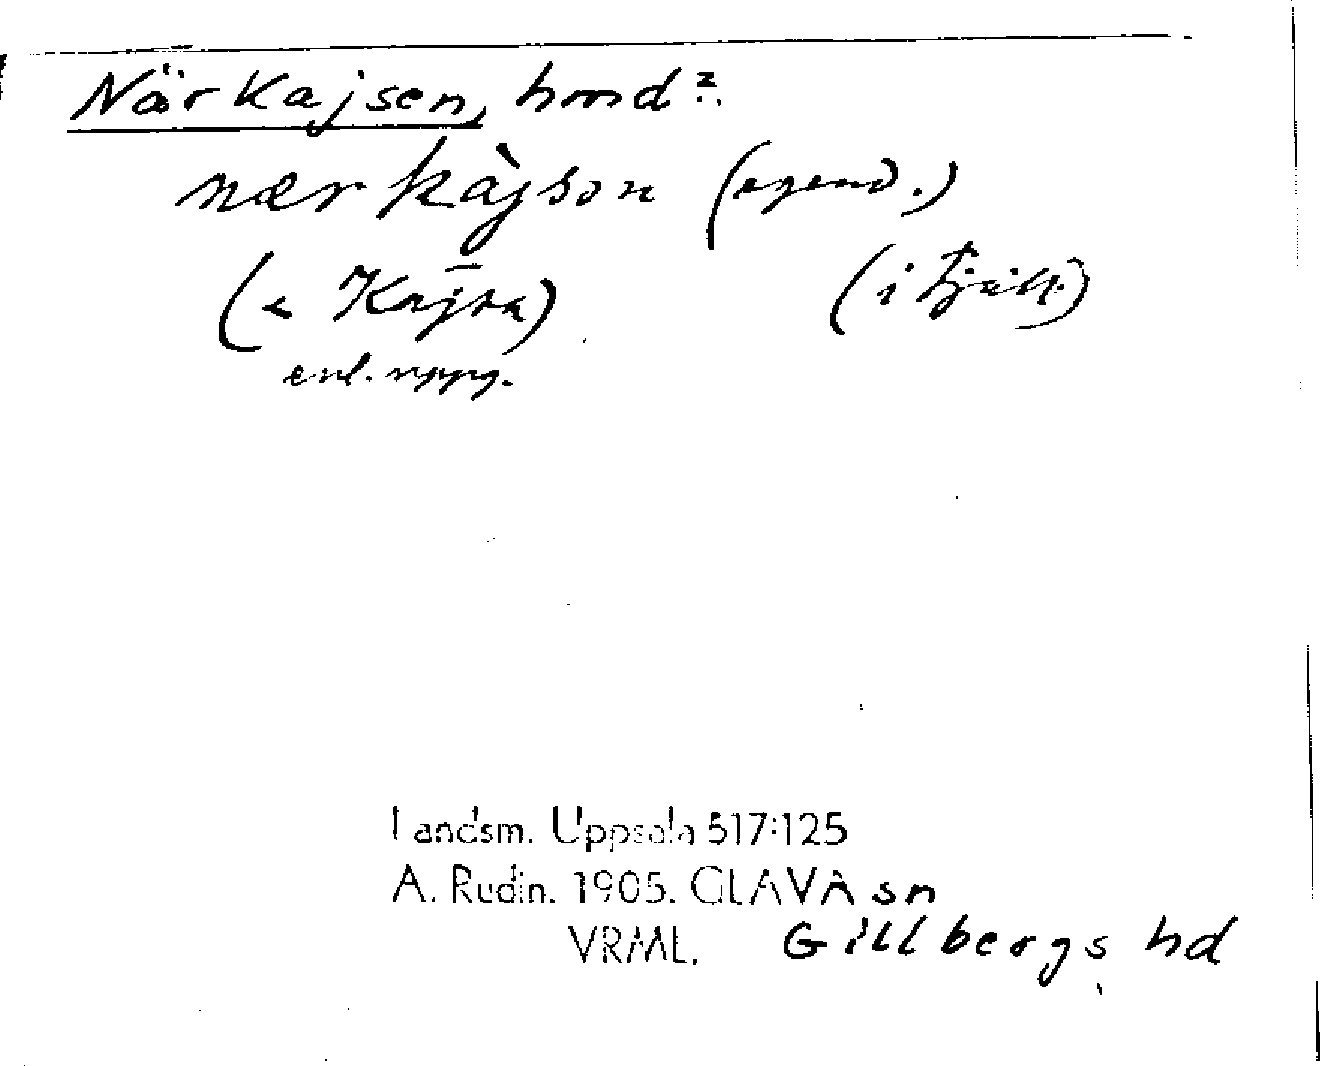 När Kajsen, hmd?
nær kàjson (egend.)
(< Kajsa) (i Fjäll.)
enl. uppg.
Landsm. Uppsala 517:125
A. Rudin. 1905. GLAVA sn
VRML. Gillbergs hd